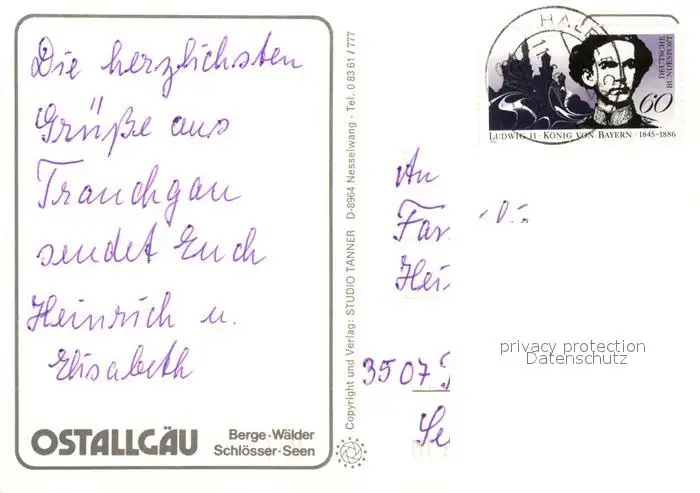 Die herzlichsten
Grüße aus
Trauchgau
sendet Euch
Heinrich u.
Elisabeth
OSTALLGÄU
Berge·Wälder
Schlösser·Seen
Copyright und Verlag: STUDIO TANNER D-8964 Nesselwang · Tel. 0 83 61 / 777
DEUTSCHE
BUNDESPOST
60
LUDWIG II · KÖNIG VON BAYERN · 1845-1886
An
3507
privacy protection
Datenschutz